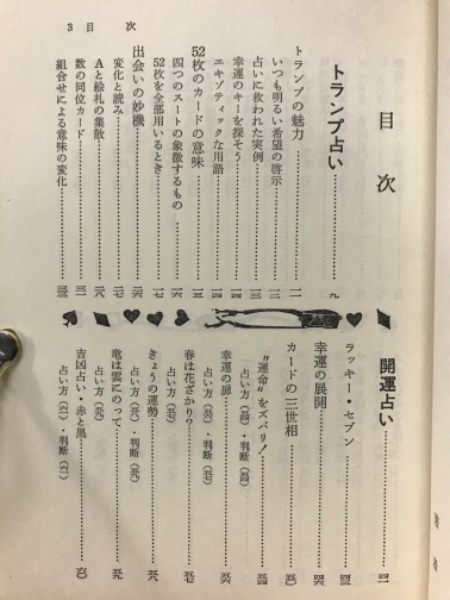 3 目 次
目 次
トランプ占い……九
トランプの魅力……一一
いつも明るい希望の啓示……一二
占いに救われた実例……一三
幸運のキーを探そう……一四
エキゾティックな用語……一四
52枚のカードの意味……一五
四つのスートの象徴するもの……一六
52枚を全部用いるとき……一七
出会いの妙機……二六
変化と読み……二七
Aと絵札の集散……二八
数の同位カード……三一
組合せによる意味の変化
開運占い……四一
ラッキー・セブン
幸運の展開……四六
カードの三世相……五〇
“運命”をズバリ!……五四
占い方(五四)・判断(五四)
幸運の扉……五六
占い方(五六)・判断(五七)
春は花ざかり?……五七
占い方(五七)
きょうの運勢……五八
占い方(五八)・判断(五九)
竜は雲にのって……五九
占い方(五九)
吉凶占い・赤と黒……六〇
占い方(六一)・判断(六一)